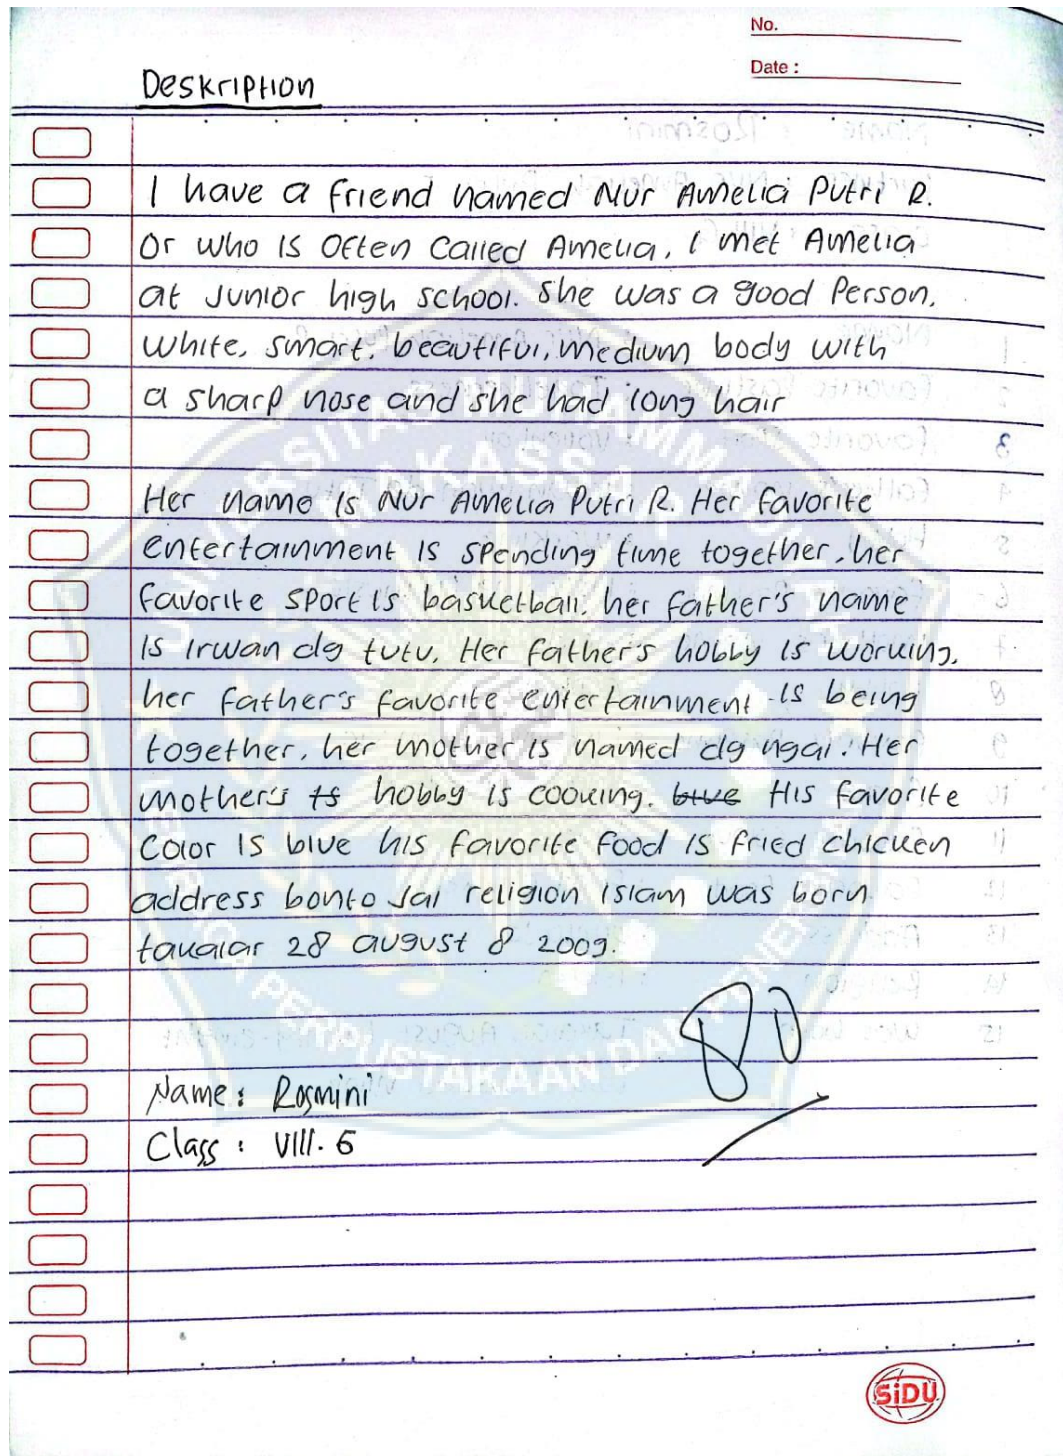 No.
Date :
Deskription
I have a friend named Nur Amelia Putri R.
Or who is Often Called Amelia, I met Amelia
at Junior high school. She was a good Person,
White, smart, beautiful, medium body with
a sharp nose and she had long hair
Her name is Nur Amelia Putri R. Her favorite
entertainment is spending time together, her
favorite sport is basketball, her father's name
is irwan dg tutu. Her father's hobby is working,
her father's favorite entertainment is being
together, her mother is named dg ngai. Her
mother's is hobby is cooking. blue His favorite
Color is blue his favorite food is fried chicken
address bonto Jai religion islam was born
takalar 28 august 8 2009.
80
Name : Rosmini
Class : VIII. 6
SiDU
UNIVERSITAS MUHAMMADIYAH
MAKASSAR
LEMBAGA PERPUSTAKAAN DAN PENERBITAN